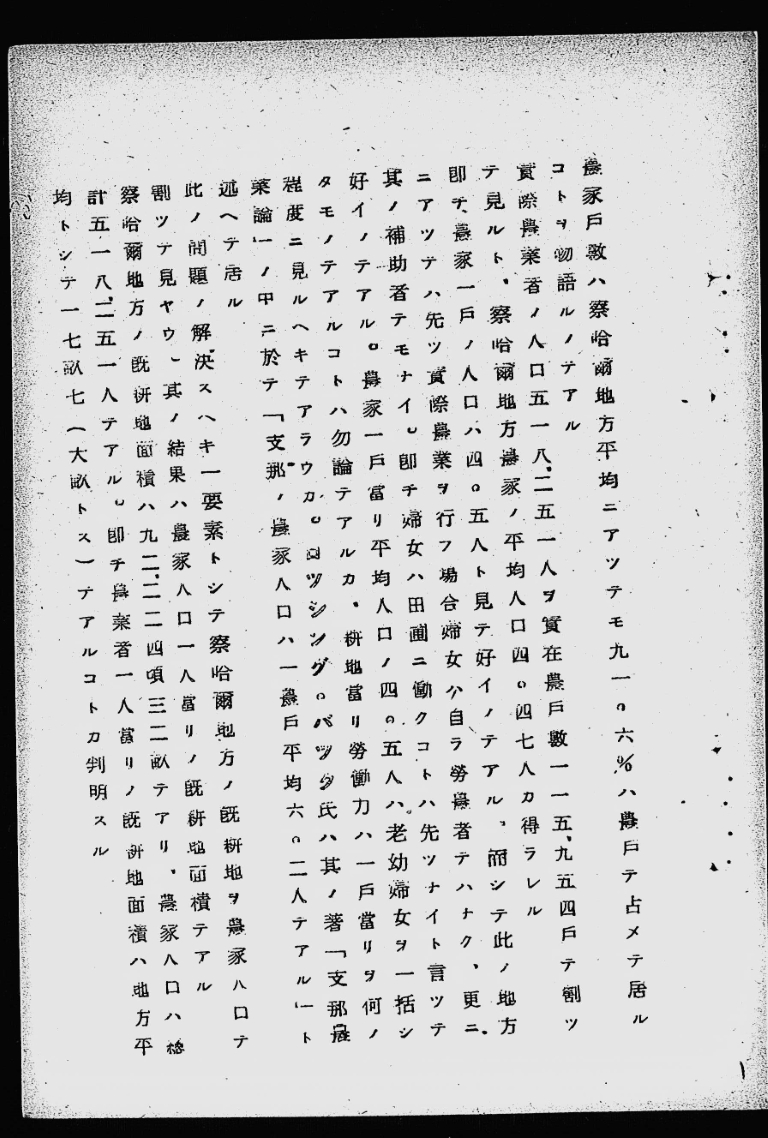 農家戸數ハ察哈爾地方平均ニアツテモ九一。六%ハ農戸テ占メテ居ル
コトヲ物語ルノテアル
實際農業者ノ人口五一八、二五一人ヲ實在農戸數一一五、九五四戸テ割ツ
テ見ルト、察哈爾地方農家ノ平均人口四。四七人カ得ラレル
即チ農家一戸ノ人口ハ四。五人ト見テ好イノテアル、而シテ此ノ地方
ニアツテハ先ツ實際農業ヲ行フ場合婦女ハ自ラ勞農者テハナク、更ニ
其ノ補助者テモナイ。即チ婦女ハ田圃ニ働クコトハ先ツナイト言ツテ
好イノテアル。農家一戸當リ平均人口ノ四。五人ハ老幼婦女ヲ一括シ
タモノテアルコトハ勿論テアルカ、耕地當リ勞働力ハ一戸當リヲ何ノ
程度ニ見ルヘキテアラウカ。ロツシング。バツク氏ハ其ノ著「支那農
業論」ノ中ニ於テ「支那ノ農家人口ハ一農戸平均六。二人テアル」ト
述ヘテ居ル
此ノ問題ノ解決スヘキ一要素トシテ察哈爾地方ノ既耕地ヲ農家人口テ
割ツテ見ヤウ、其ノ結果ハ農家人口一人當リノ既耕地面積テアル
察哈爾地方ノ既耕地面積ハ九二、二二四頃三二畝テアリ、農家人口ハ總
計五一八、二五一人テアル。即チ農業者一人當リノ既耕地面積ハ地方平
均トシテ一七畝七(大畝トス)テアルコトカ判明スル